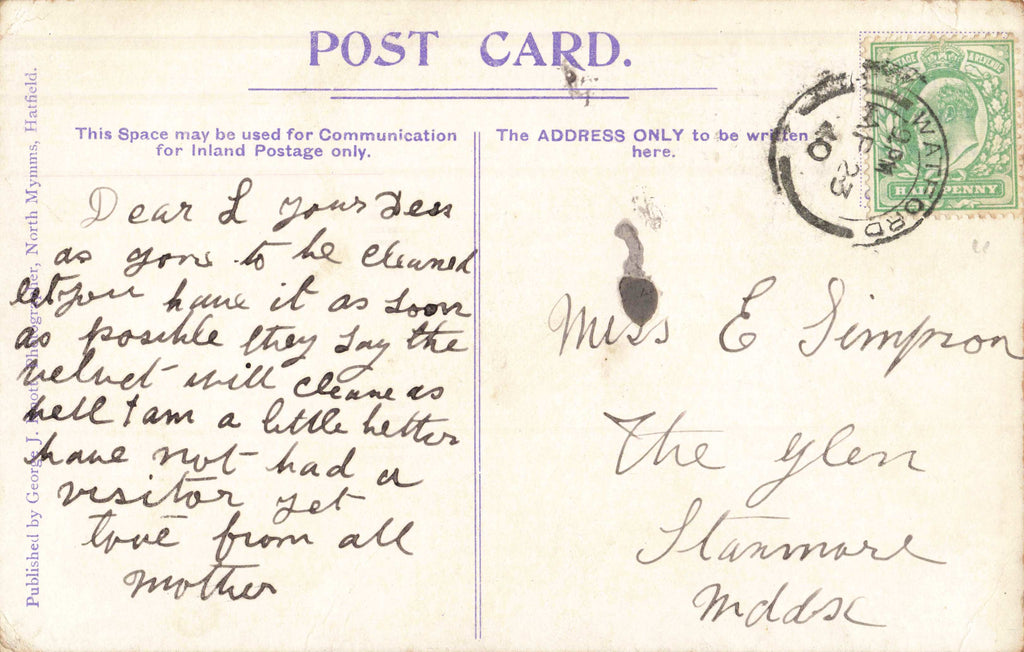 POST CARD.
This Space may be used for Communication
for Inland Postage only.
The ADDRESS ONLY to be written
here.
Published by George J. Knott, Photographer, North Mymms, Hatfield.
WATFORD
9 PM
AP 23
10
HALFPENNY
Dear L your Dess
as gone to be cleaned
let you have it as soon
as posible they say the
velvet will cleane as
well I am a little better
have not had a
visitor yet
love from all
Mother
Miss E Simpson
The Glen
Stanmore
Mddsx